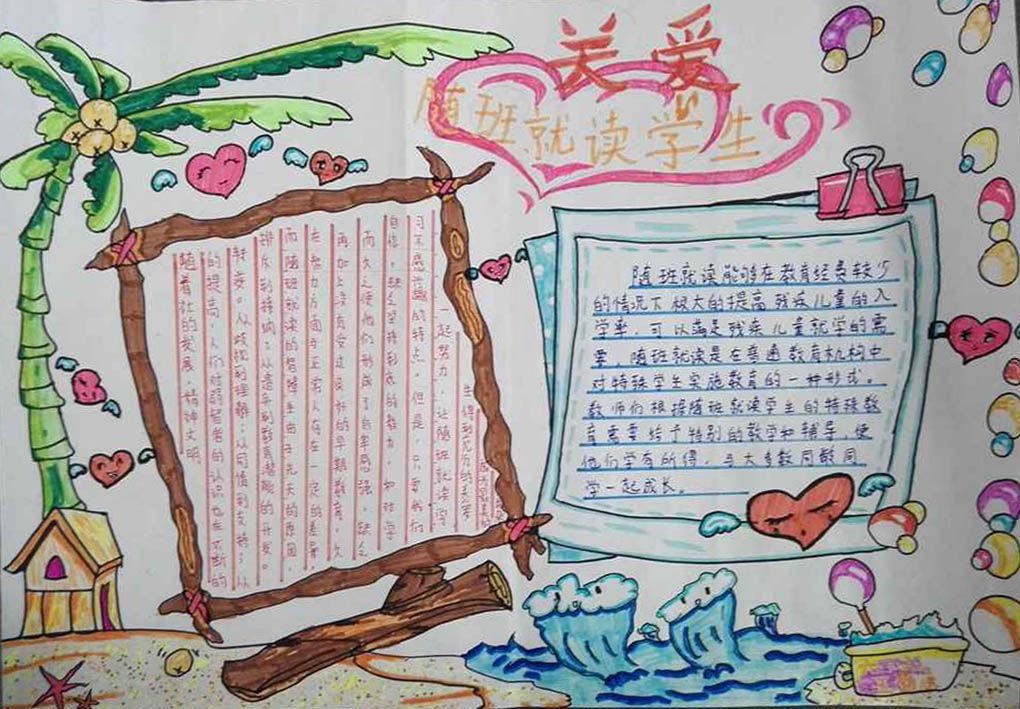 关爱
随班就读学生
随着社的发展,精神文明
的提高,人们对弱智者的认识也在不断的
转变。从歧视到理解;从同情到支持;从
排斥到接纳;从遗弃到教育潜能的开发。
而随班就读的智障生由于先天的原因,
在智力方面与正常人存在一定的差异,
再加上没有受过良好的早期教育,久
而久之使他们形成了自卑感强,缺乏
自信,缺乏坚持到底的毅力,如对学
习不感兴趣的特点。但是,只要我们
一起努力,让随班就读学
生得到充分的关爱
随班就读能够在教育经费较少
的情况下极大的提高残疾儿童的入
学率,可以满足残疾儿童就学的需
要,随班就读是在普通教育机构中
对特殊学生实施教育的一种形式。
教师们根据随班就读学生的特殊教
育需要给予特别的教学和辅导,使
他们学有所得,与大多数同龄同
学一起成长。